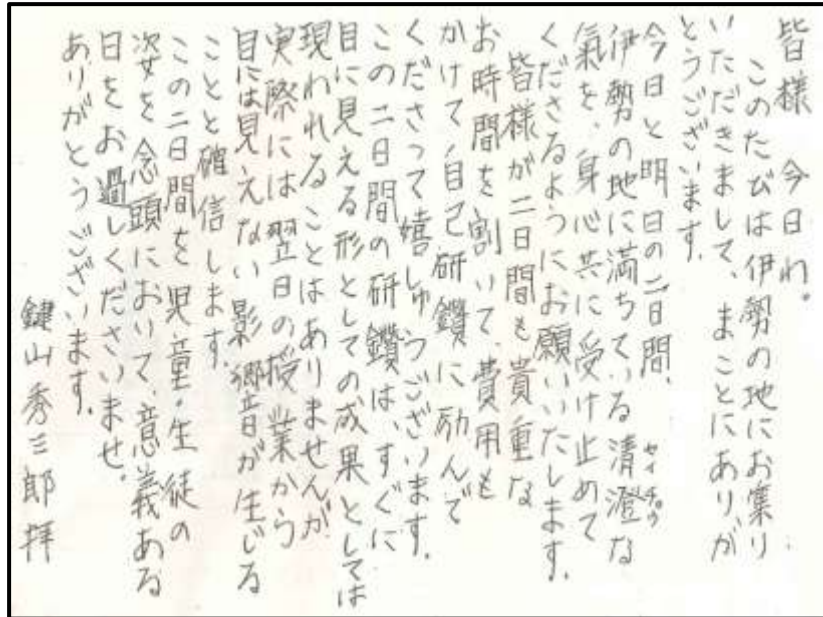 皆様　今日わ。
このたびは伊勢の地にお集り
いただきまして、まことにありが
とうございます。
今日と明日の二日間、
伊勢の地に満ちている清澄な
セイチョウ
氣を、身心共に受け止めて
くださるようにお願いいたします。
皆様が二日間も貴重な
お時間を割いて、費用も
かけて自己研鑽に励んで
くださって嬉しゅうございます。
この二日間の研鑽は、すぐに
目に見える形としての成果としては
現われることはありませんが
実際には翌日の授業から
目には見えない影響が生じる
ことと確信します。
この二日間を児童・生徒の
姿を念頭において、意義ある
日をお過しくださいませ。
ありがとうございます。
鍵山秀三郎 拝